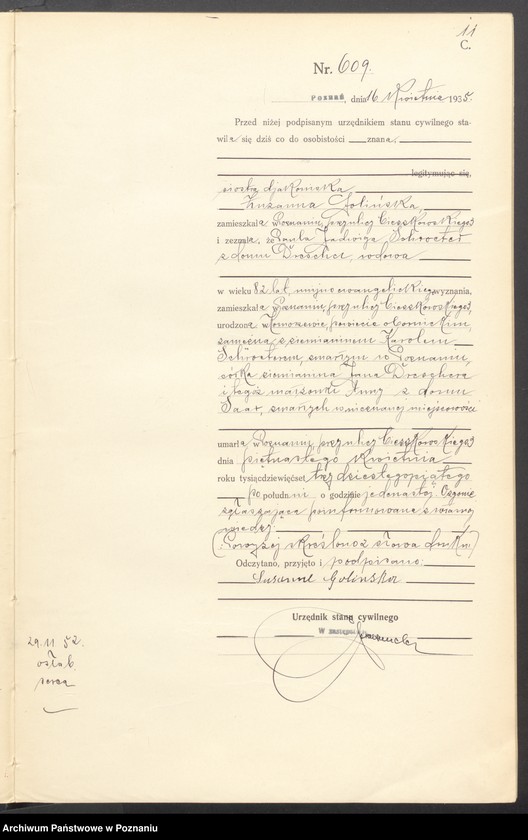 11
C.
Nr. 609.
Poznań, dnia 16 Kwietnia 1935.
Przed niżej podpisanym urzędnikiem stanu cywilnego sta-
wiła się dziś co do osobistości znana,
legitymując się,
siostra djakoniska
Zuzanna Golińska,
zamieszkała w Poznaniu, przy ulicy Cieszkowskiego 3
i zeznała, że Paula Jadwiga Schroeter
z domu Drescher, wdowa
w wieku 82 lat, unijno ewangelickiego wyznania,
zamieszkała w Poznaniu, przy ulicy Cieszkowskiego 3,
urodzona w powiecie obornickim
zamężna z ziemianinem Karolem
Schroeterem, zmarłym w Poznaniu,
córka ziemianina Jana Dreschera
i tegoż małżonki Anny z domu
Saar, zmarłych w nieznanej miejscowości
umarła w Poznaniu, przy ulicy Cieszkowskiego 3
dnia piętnastego Kwietnia
roku tysiącdziewięćset trzydziestego piątego
po południu o godzinie jedenastej. O zgonie
zgłaszająca poinformowana z własnej
wiedzy
(Powyżej skreślono słowa druku)
Odczytano, przyjęto i podpisano:
Susanne Golinska
Urzędnik stanu cywilnego
W zastępstwie
29.11.52.
osłab
serca
Archiwum Państwowe w Poznaniu